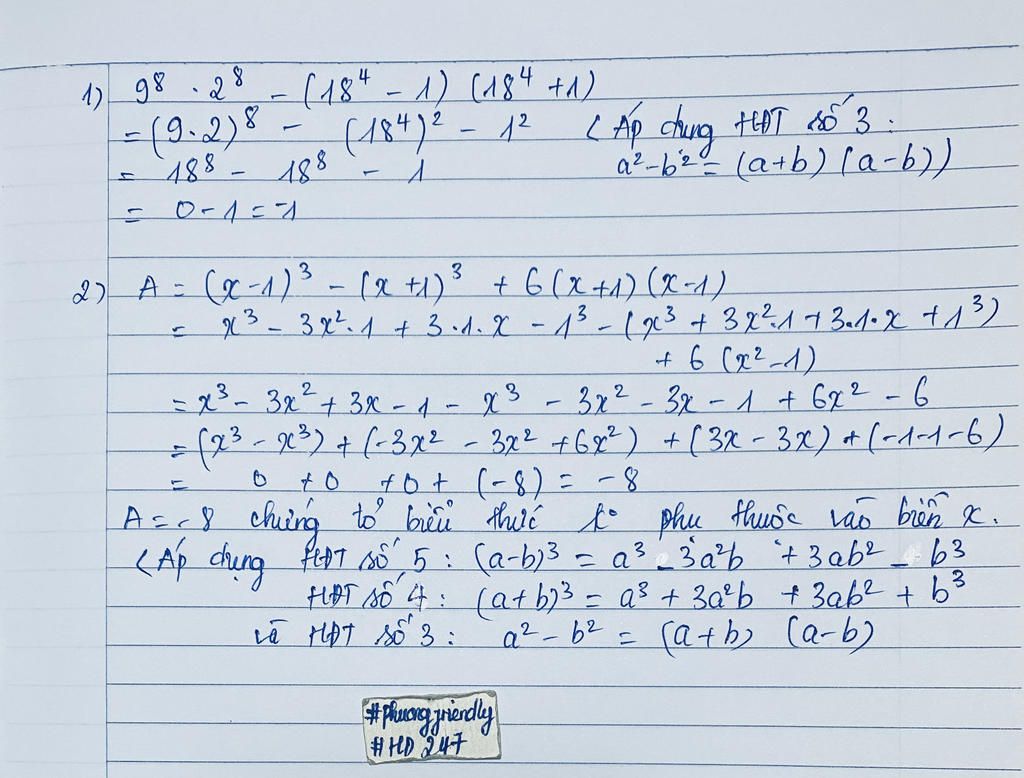 1) 9⁸ . 2⁸ - (18⁴ - 1) (18⁴ + 1)
= (9.2)⁸ - (18⁴)² - 1² (Áp dụng HĐT số 3:
= 18⁸ - 18⁸ - 1 a² - b² = (a+b) (a-b))
= 0 - 1 = -1
2) A = (x-1)³ - (x+1)³ + 6(x+1)(x-1)
= x³ - 3x².1 + 3.1.x - 1³ - (x³ + 3x².1 + 3.1.x + 1³)
+ 6 (x² - 1)
= x³ - 3x² + 3x - 1 - x³ - 3x² - 3x - 1 + 6x² - 6
= (x³ - x³) + (-3x² - 3x² + 6x²) + (3x - 3x) + (-1-1-6)
= 0 + 0 + 0 + (-8) = -8
A = -8 chứng tỏ biểu thức k° phụ thuộc vào biến x.
(Áp dụng HĐT số 5: (a-b)³ = a³ - 3a²b + 3ab² - b³
HĐT số 4: (a+b)³ = a³ + 3a²b + 3ab² + b³
và HĐT số 3: a² - b² = (a+b) (a-b)
#phuongfriendly
#HD 247